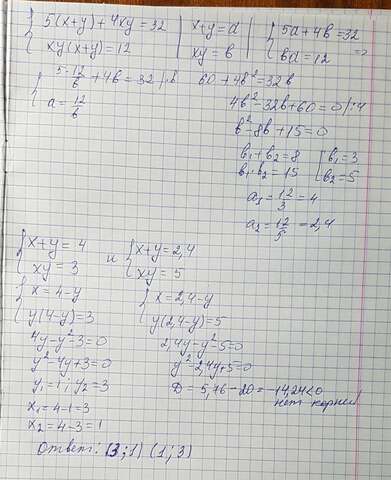 { 5(x+y)+4xy=32 | x+y=a | { 5a+4b=32
{ xy(x+y)=12 | xy=b | { ba=12 =>
{ 5·12/b +4b=32 |·b 60+4b²=32b
{ a=12/b
4b²-32b+60=0 |:4
b²-8b+15=0
b₁+b₂=8 [ b₁=3
b₁·b₂=15 [ b₂=5
a₁=12/3=4
a₂=12/5=2,4
{ x+y=4 и { x+y=2,4
{ xy=3 { xy=5
{ x=4-y { x=2,4-y
{ y(4-y)=3 { y(2,4-y)=5
4y-y²-3=0 2,4y-y²-5=0
y²-4y+3=0 y²-2,4y+5=0
y₁=1; y₂=3 D=5,76-20=-14,24<0
нет корней
x₁=4-1=3
x₂=4-3=1
Ответ: (3;1) (1;3)